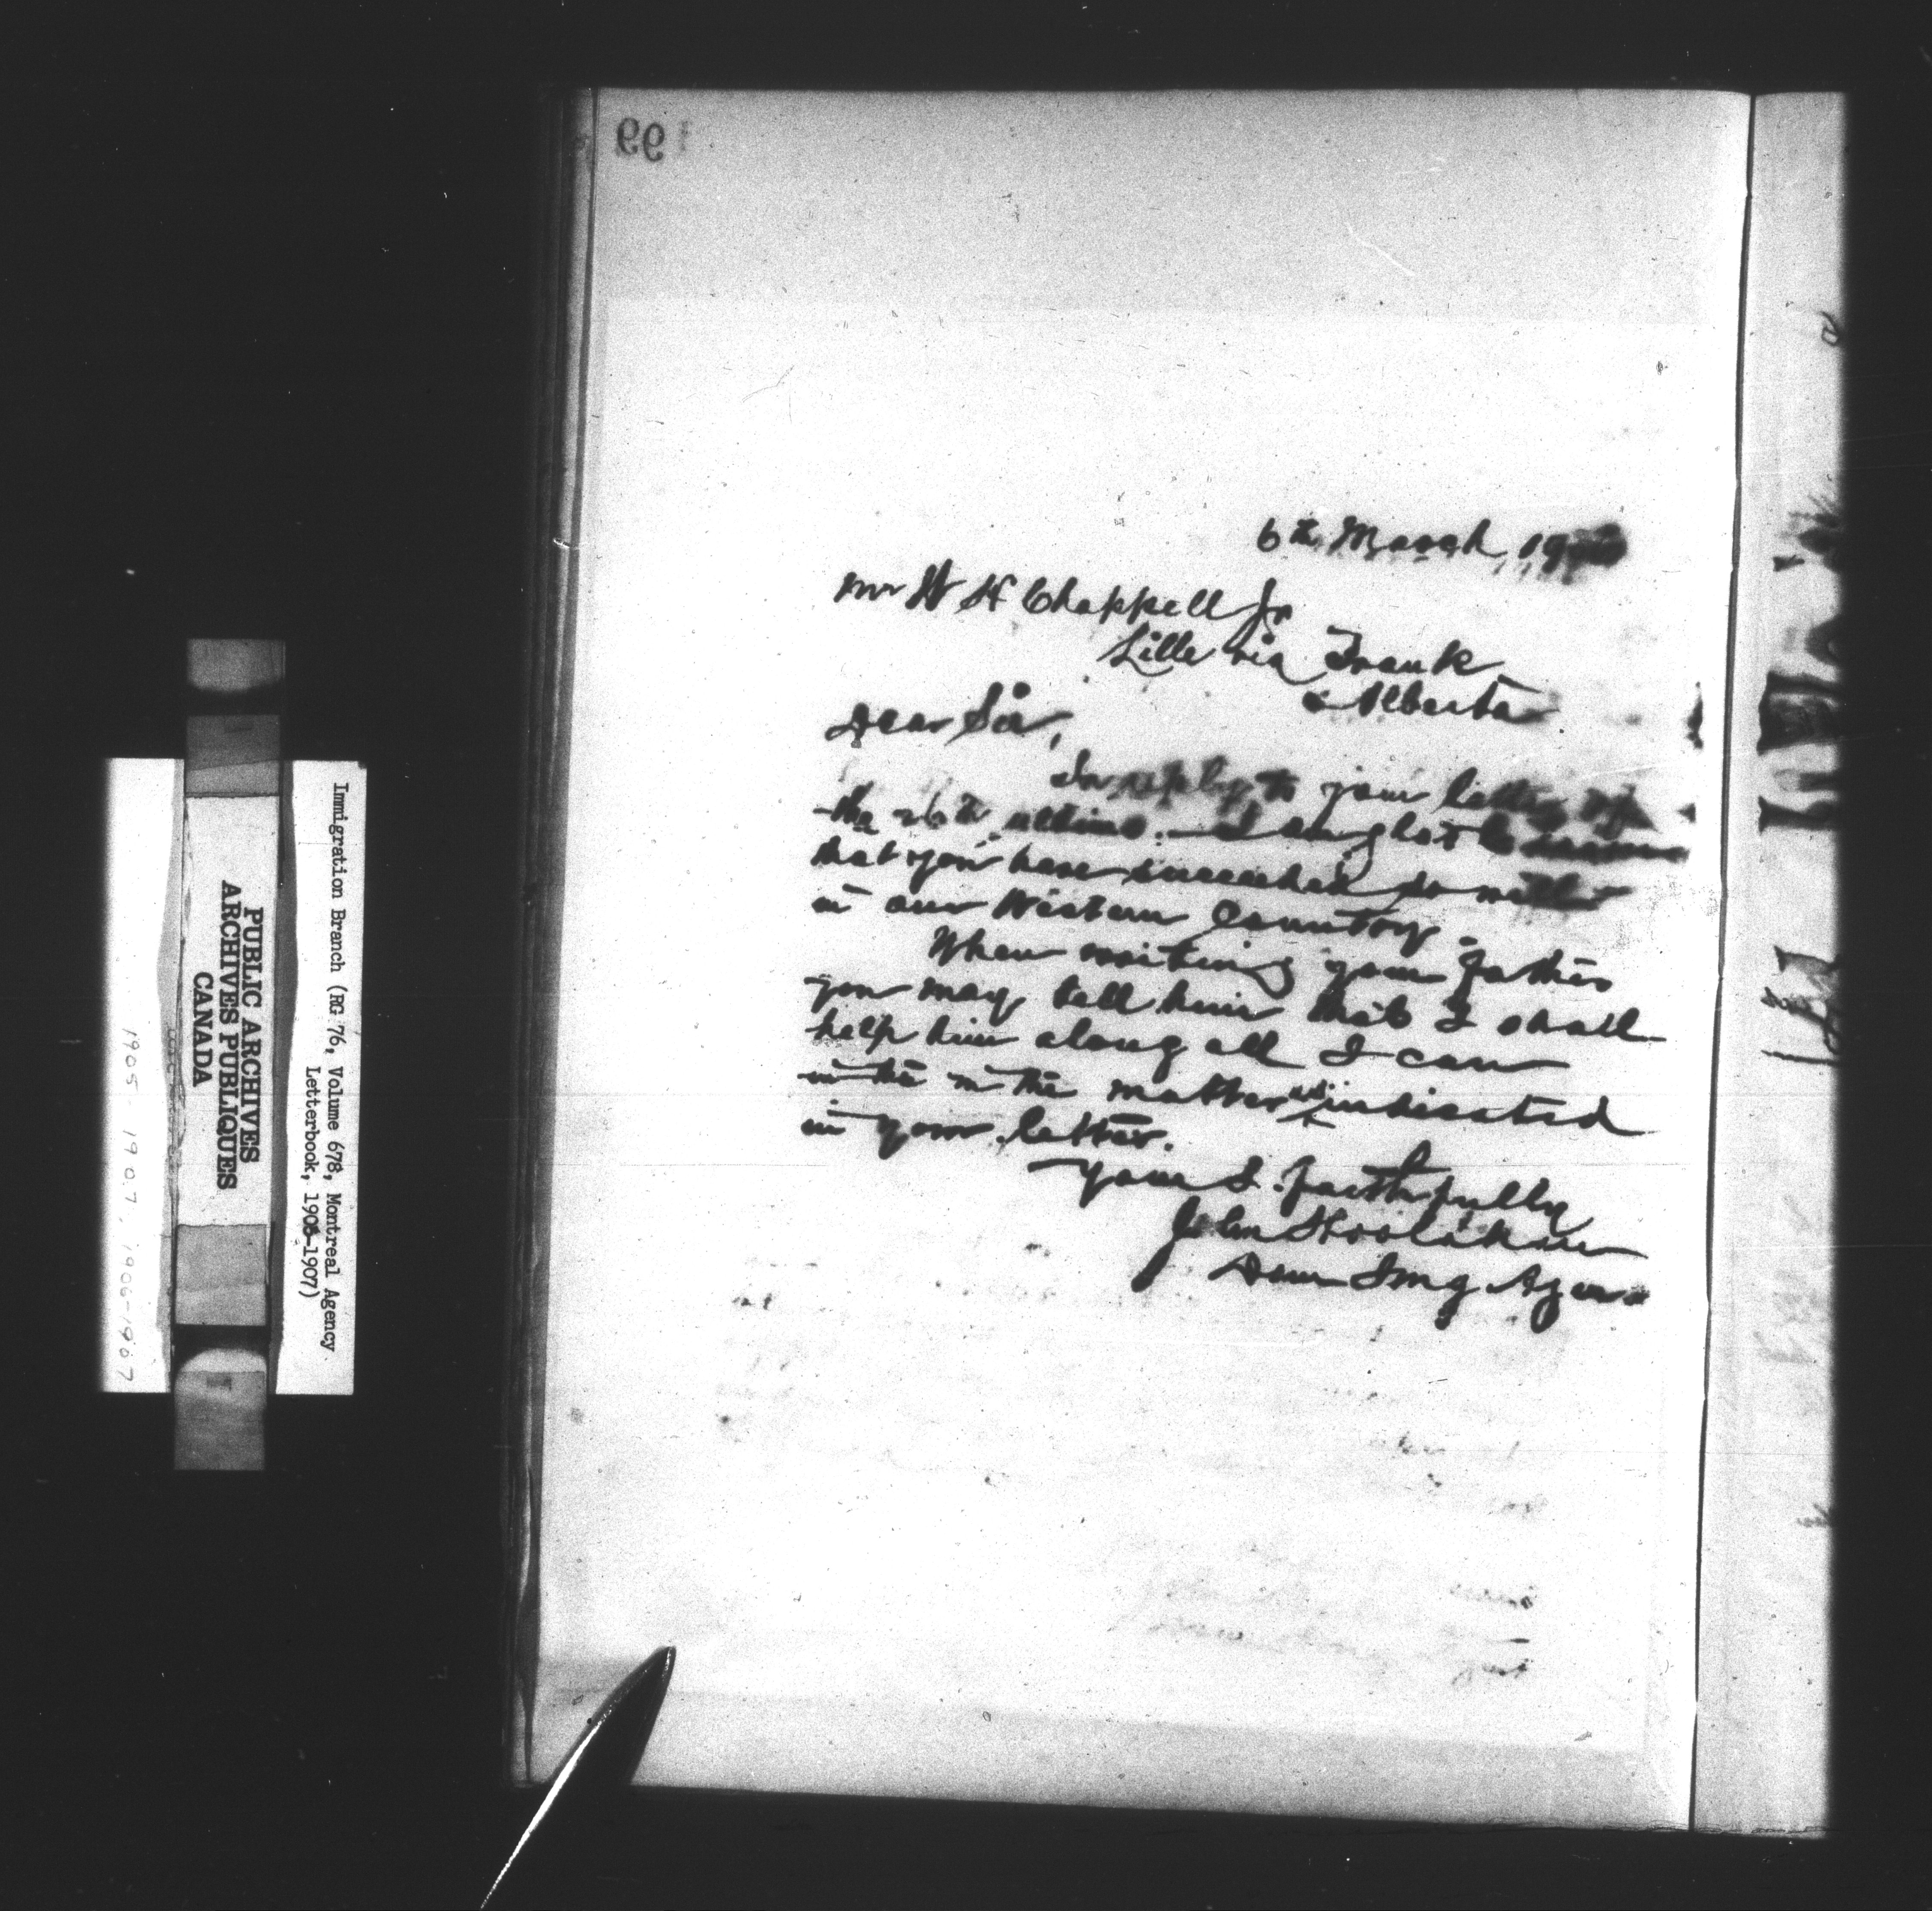 99
6th March, 19
Mr W H Chappell Jr
Lille via Frank
Alberta
Dear Sir,
In reply to your letter of
the 26th ultimo. I am glad to
that you have succeeded so well
in our Western Country.
When writing your father
you may tell him that I shall
help him along all I can
in the in the matter indicated
in your letter.
Yours faithfully
John Hoolahan
Dom Img Agent
Immigration Branch (RG 76, Volume 678, Montreal Agency
Letterbook, 1906-1907)
PUBLIC ARCHIVES
ARCHIVES PUBLIQUES
CANADA
1905-1907, 1906-1907